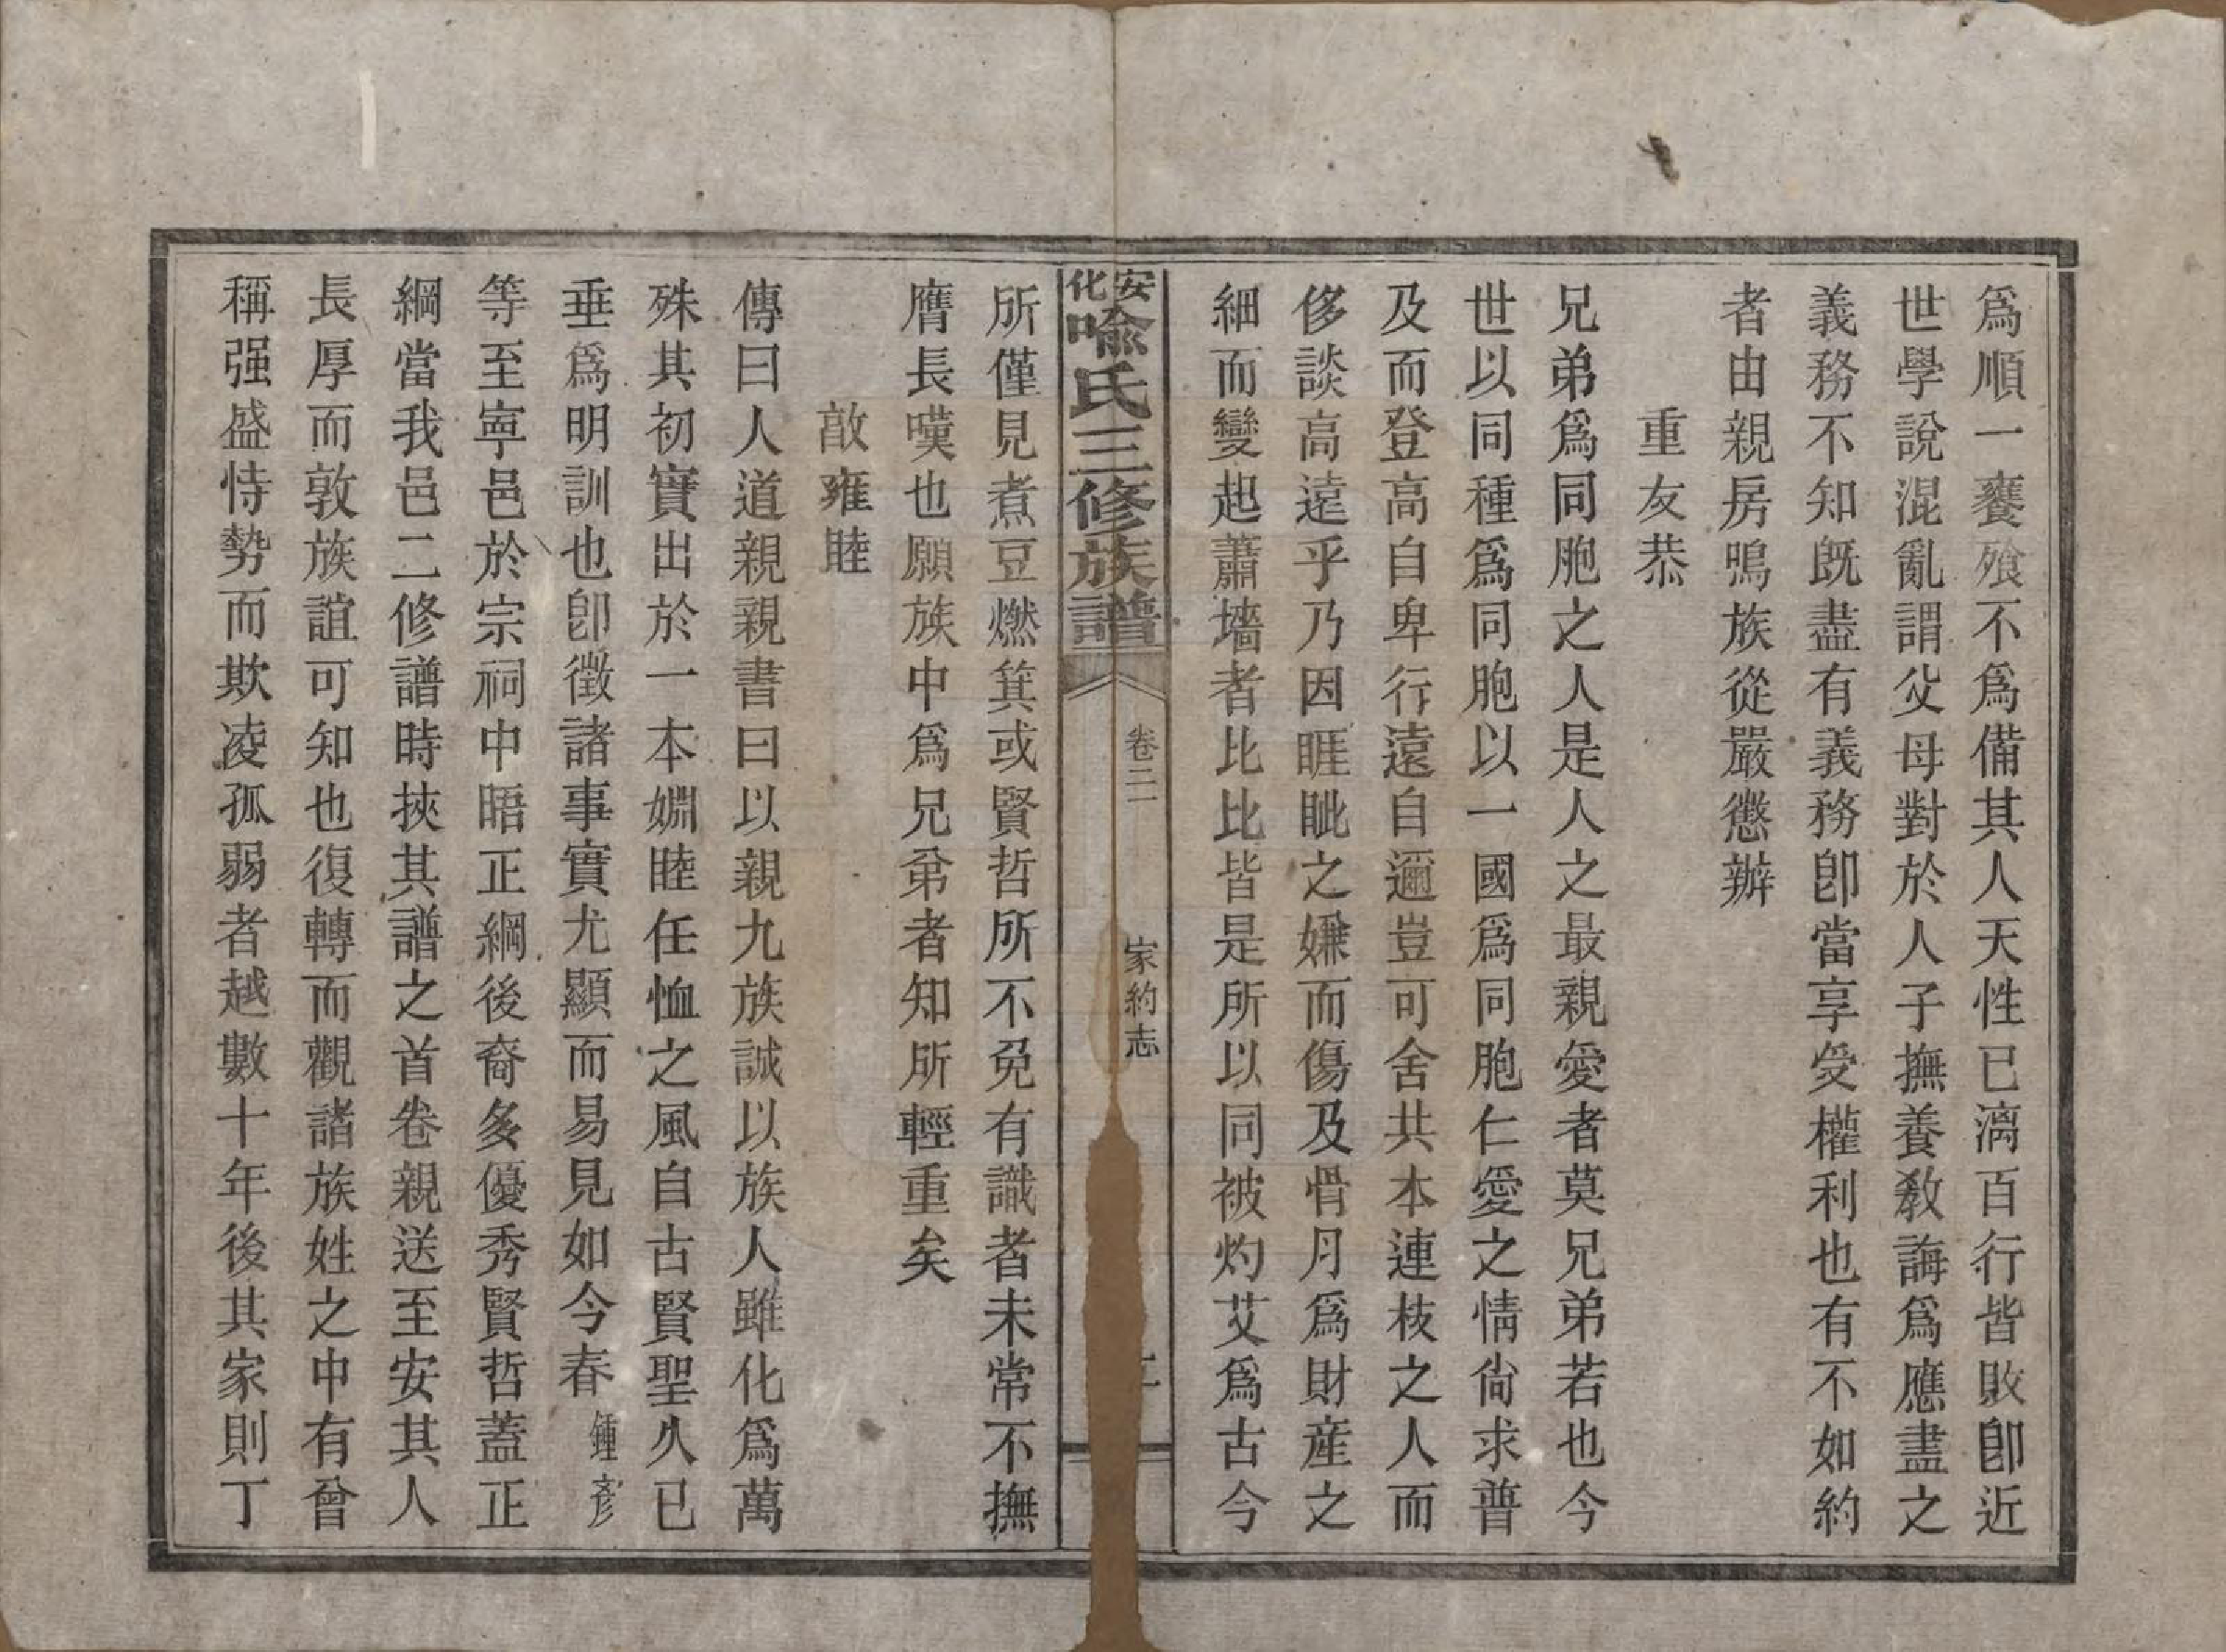 爲順一饔飱不爲備其人天性已漓百行皆敗卽近
世學說混亂謂父母對於人子撫養教誨爲應盡之
義務不知既盡有義務卽當享受權利也有不如約
者由親房鳴族從嚴懲辦
重友恭
兄弟爲同胞之人是人之最親愛者莫兄弟若也今
世以同種爲同胞以一國爲同胞仁愛之情尙求普
及而登高自卑行遠自邇豈可舍共本連枝之人而
侈談高遠乎乃因睚眦之嫌而傷及骨月爲財産之
細而變起蕭墻者比比皆是所以同被灼艾爲古今
安化喩氏三修族譜
卷二一
家約志
所僅見煮豆燃箕或賢哲所不免有識者未常不撫
膺長嘆也願族中爲兄弟者知所輕重矣
敌雍睦
傳曰人道親親書曰以親九族誠以族人雖化爲萬
殊其初實出於一本婣睦任恤之風自古賢聖久已
垂爲明訓也卽徵諸事實尤顯而易見如今春鍾彥
等至寕邑於宗祠中晤正綱後裔多優秀賢哲蓋正
綱當我邑二修譜時挾其譜之首卷親送至安其人
長厚而敦族誼可知也復轉而觀諸族姓之中有曾
稱强盛恃勢而欺凌孤弱者越數十年後其家則丁